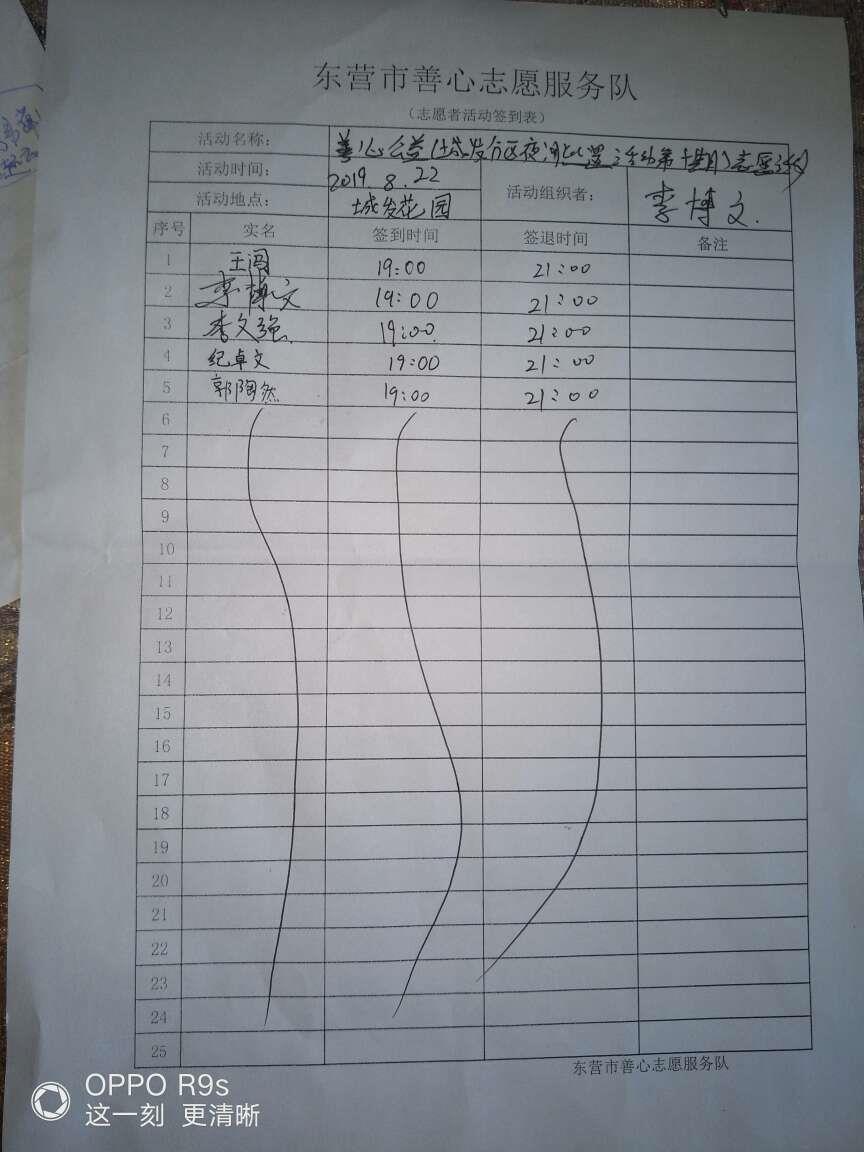 东营市善心志愿服务队
（志愿者活动签到表）
活动名称： 善心公益
活动时间： 2019.8.22 活动组织者： 李博文.
活动地点： 城发花园
序号 实名 签到时间 签退时间 备注
1 王闯 19:00 21:00
2 李博文 19:00 21:00
3 李文强. 19:00. 21:00
4 纪卓文 19:00 21:00
5 郭陶然 19:00 21:00
6
7
8
9
10
11
12
13
14
15
16
17
18
19
20
21
22
23
24
25
东营市善心志愿服务队
OPPO R9s
这一刻 更清晰